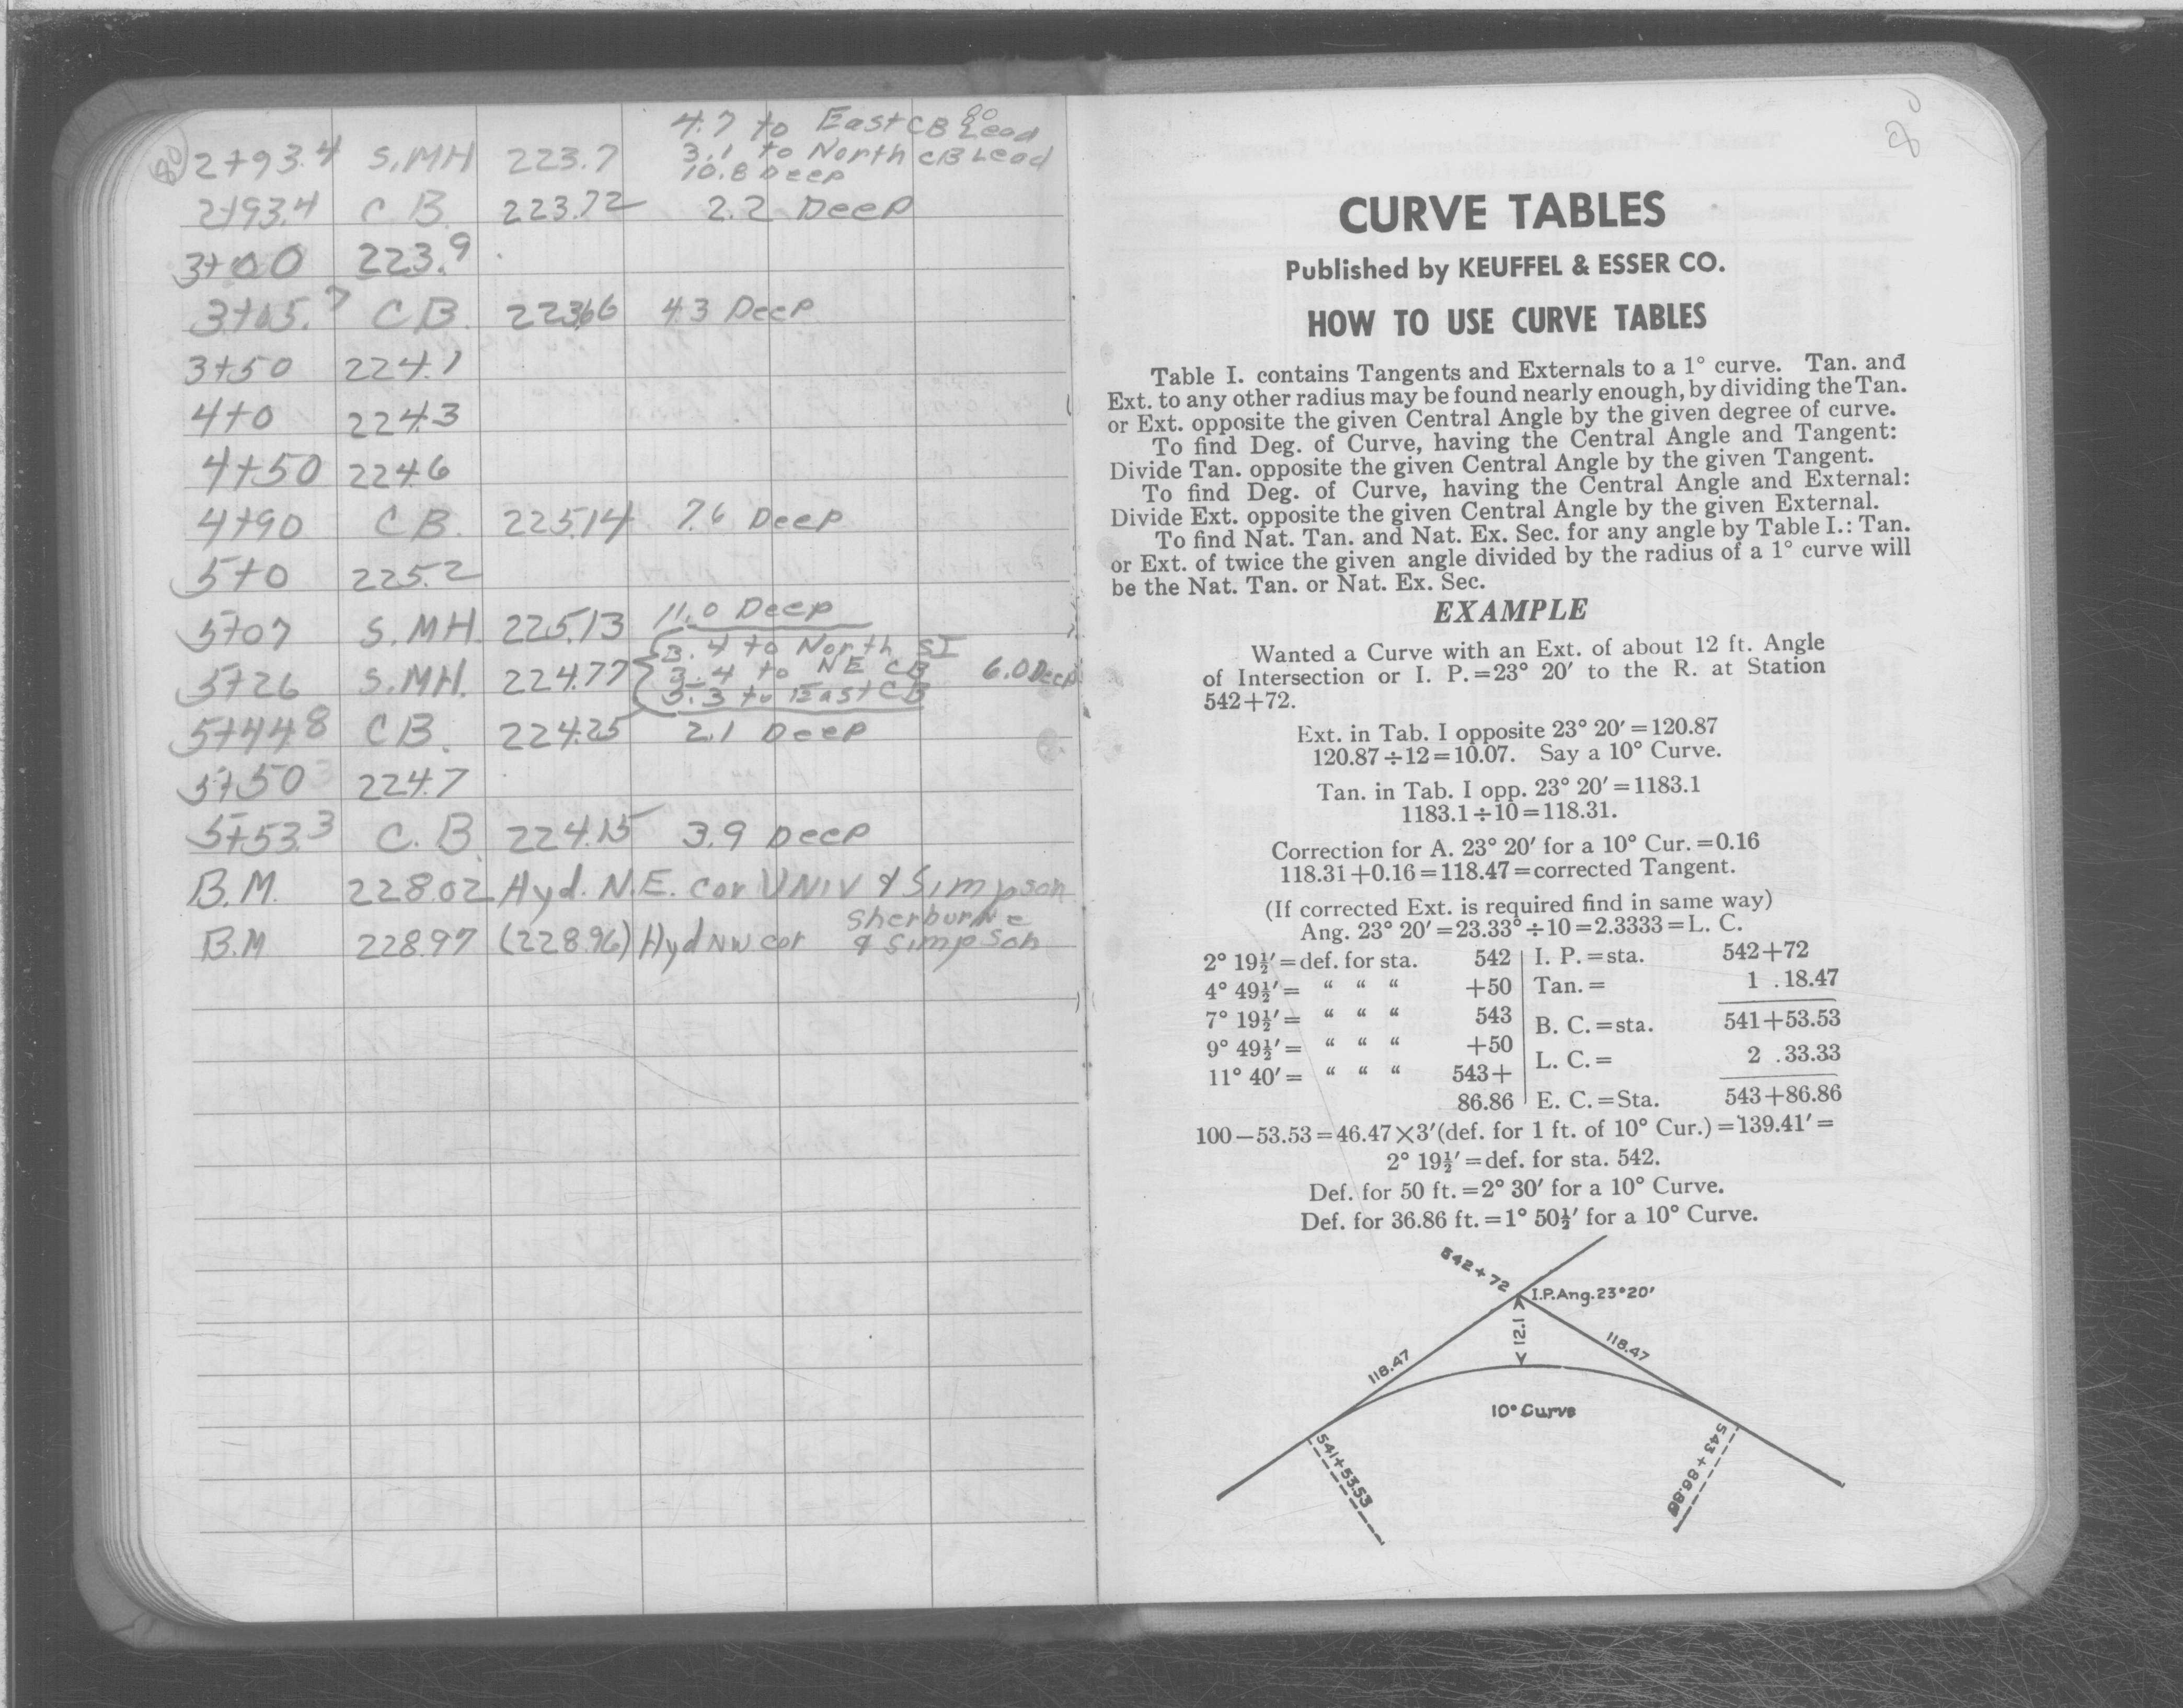 80
4.7 to East CB Lead
2+93.4 S.MH 223.7 3.1 to North CB Lead
10.8 Deep
2+93.4 C B. 223.72 2.2 Deep
3+00 223.9
3+05.7 C B. 223.66 4.3 Deep
3+50 224.1
4+0 224.3
4+50 224.6
4+90 C B. 225.14 7.6 Deep
5+0 225.2
5+07 S.MH. 225.13 11.0 Deep
3.4 to North SI
5+26 S.MH. 224.77 3.4 to NE CB 6.0 Deep
3.3 to East CB
5+44.8 C B. 224.25 2.1 Deep
5+50 224.7
5+53.3 C. B. 224.15 3.9 Deep
B.M. 228.02 Hyd. N.E. cor UNIV & Simpson
Sherburne
B.M 228.97 (228.96) Hyd NW cor & Simpson
80
CURVE TABLES
Published by KEUFFEL & ESSER CO.
HOW TO USE CURVE TABLES
Table I. contains Tangents and Externals to a 1° curve. Tan. and
Ext. to any other radius may be found nearly enough, by dividing the Tan.
or Ext. opposite the given Central Angle by the given degree of curve.
To find Deg. of Curve, having the Central Angle and Tangent:
Divide Tan. opposite the given Central Angle by the given Tangent.
To find Deg. of Curve, having the Central Angle and External:
Divide Ext. opposite the given Central Angle by the given External.
To find Nat. Tan. and Nat. Ex. Sec. for any angle by Table I.: Tan.
or Ext. of twice the given angle divided by the radius of a 1° curve will
be the Nat. Tan. or Nat. Ex. Sec.
EXAMPLE
Wanted a Curve with an Ext. of about 12 ft. Angle
of Intersection or I. P.=23° 20′ to the R. at Station
542+72.
Ext. in Tab. I opposite 23° 20′=120.87
120.87÷12=10.07. Say a 10° Curve.
Tan. in Tab. I opp. 23° 20′=1183.1
1183.1÷10=118.31.
Correction for A. 23° 20′ for a 10° Cur.=0.16
118.31+0.16=118.47=corrected Tangent.
(If corrected Ext. is required find in same way)
Ang. 23° 20′=23.33°÷10=2.3333=L. C.
2° 19½′=def. for sta. 542 I. P.=sta. 542+72
4° 49½′= “ “ “ +50 Tan.= 1 .18.47
7° 19½′= “ “ “ 543 B. C.=sta. 541+53.53
9° 49½′= “ “ “ +50 L. C.= 2 .33.33
11° 40′= “ “ “ 543+
86.86 E. C.=Sta. 543+86.86
100−53.53=46.47×3′(def. for 1 ft. of 10° Cur.)=139.41′=
2° 19½′=def. for sta. 542.
Def. for 50 ft.=2° 30′ for a 10° Curve.
Def. for 36.86 ft.=1° 50½′ for a 10° Curve.
542+72
I.P.Ang.23°20′
12.1
118.47
118.47
10° Curve
541+53.53
543+86.86